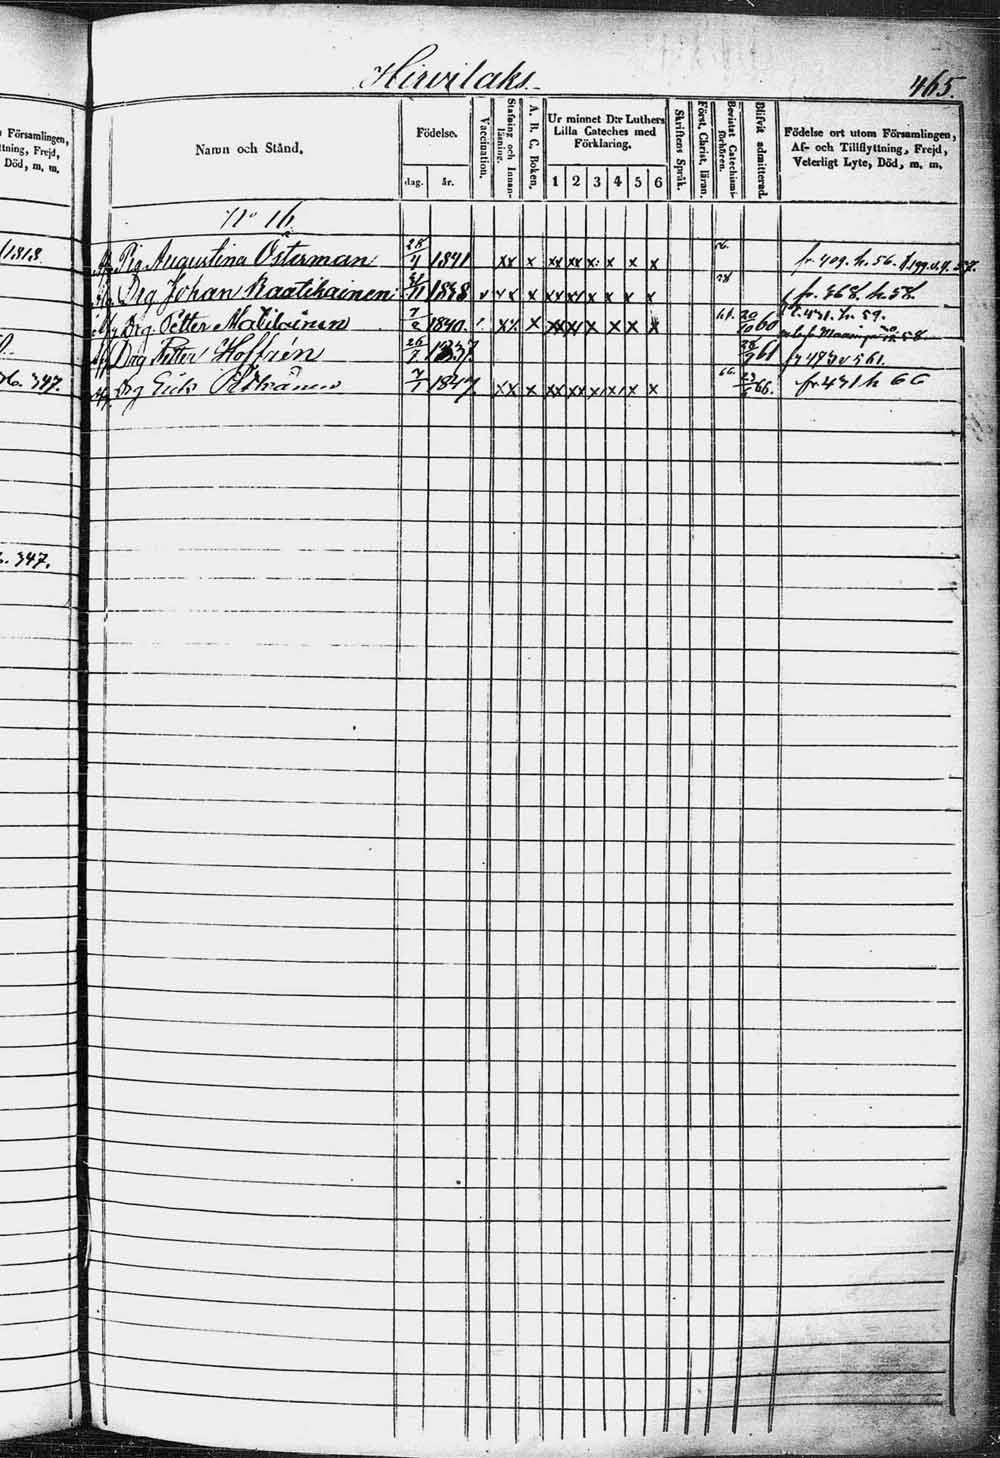 Hirvilaks. 465.
Församlingen,
ttning, Frejd,
Död, m. m.
Namn och Stånd.
Födelse.
dag. år.
Vaccination.
Stafning och Innan-läsning.
A. B. C. Boken.
Ur minnet D:r Luthers
Lilla Cateches med
Förklaring.
1 2 3 4 5 6
Skriftens Språk.
Först. Christ. läran.
Bevistat Catechismi-förhören.
Blifvit admitterad.
Födelse ort utom Församlingen,
Af- och Tillflyttning, Frejd,
Veterligt Lyte, Död, m. m.
No 16.
1818. Pig Augustina Osterman 28/4 1841 xx x xx xx x x x x fr 409. h. 56.
Drg Johan Raatikainen 1838 v x x x xx xx x x x x 58 fr. 368. h. 58.
Drg. Petter Matilainen 7/2 1840. xx x xx xx x x x x 61 20/10 60 431. 59.
Drg Petter Hoffrén 26/7 1837. 28/9 61 fr 473 561.
347. Drg Erik 7/1 1847. xx x xx xx x x x x 66 66. fr 431 h 66
347.